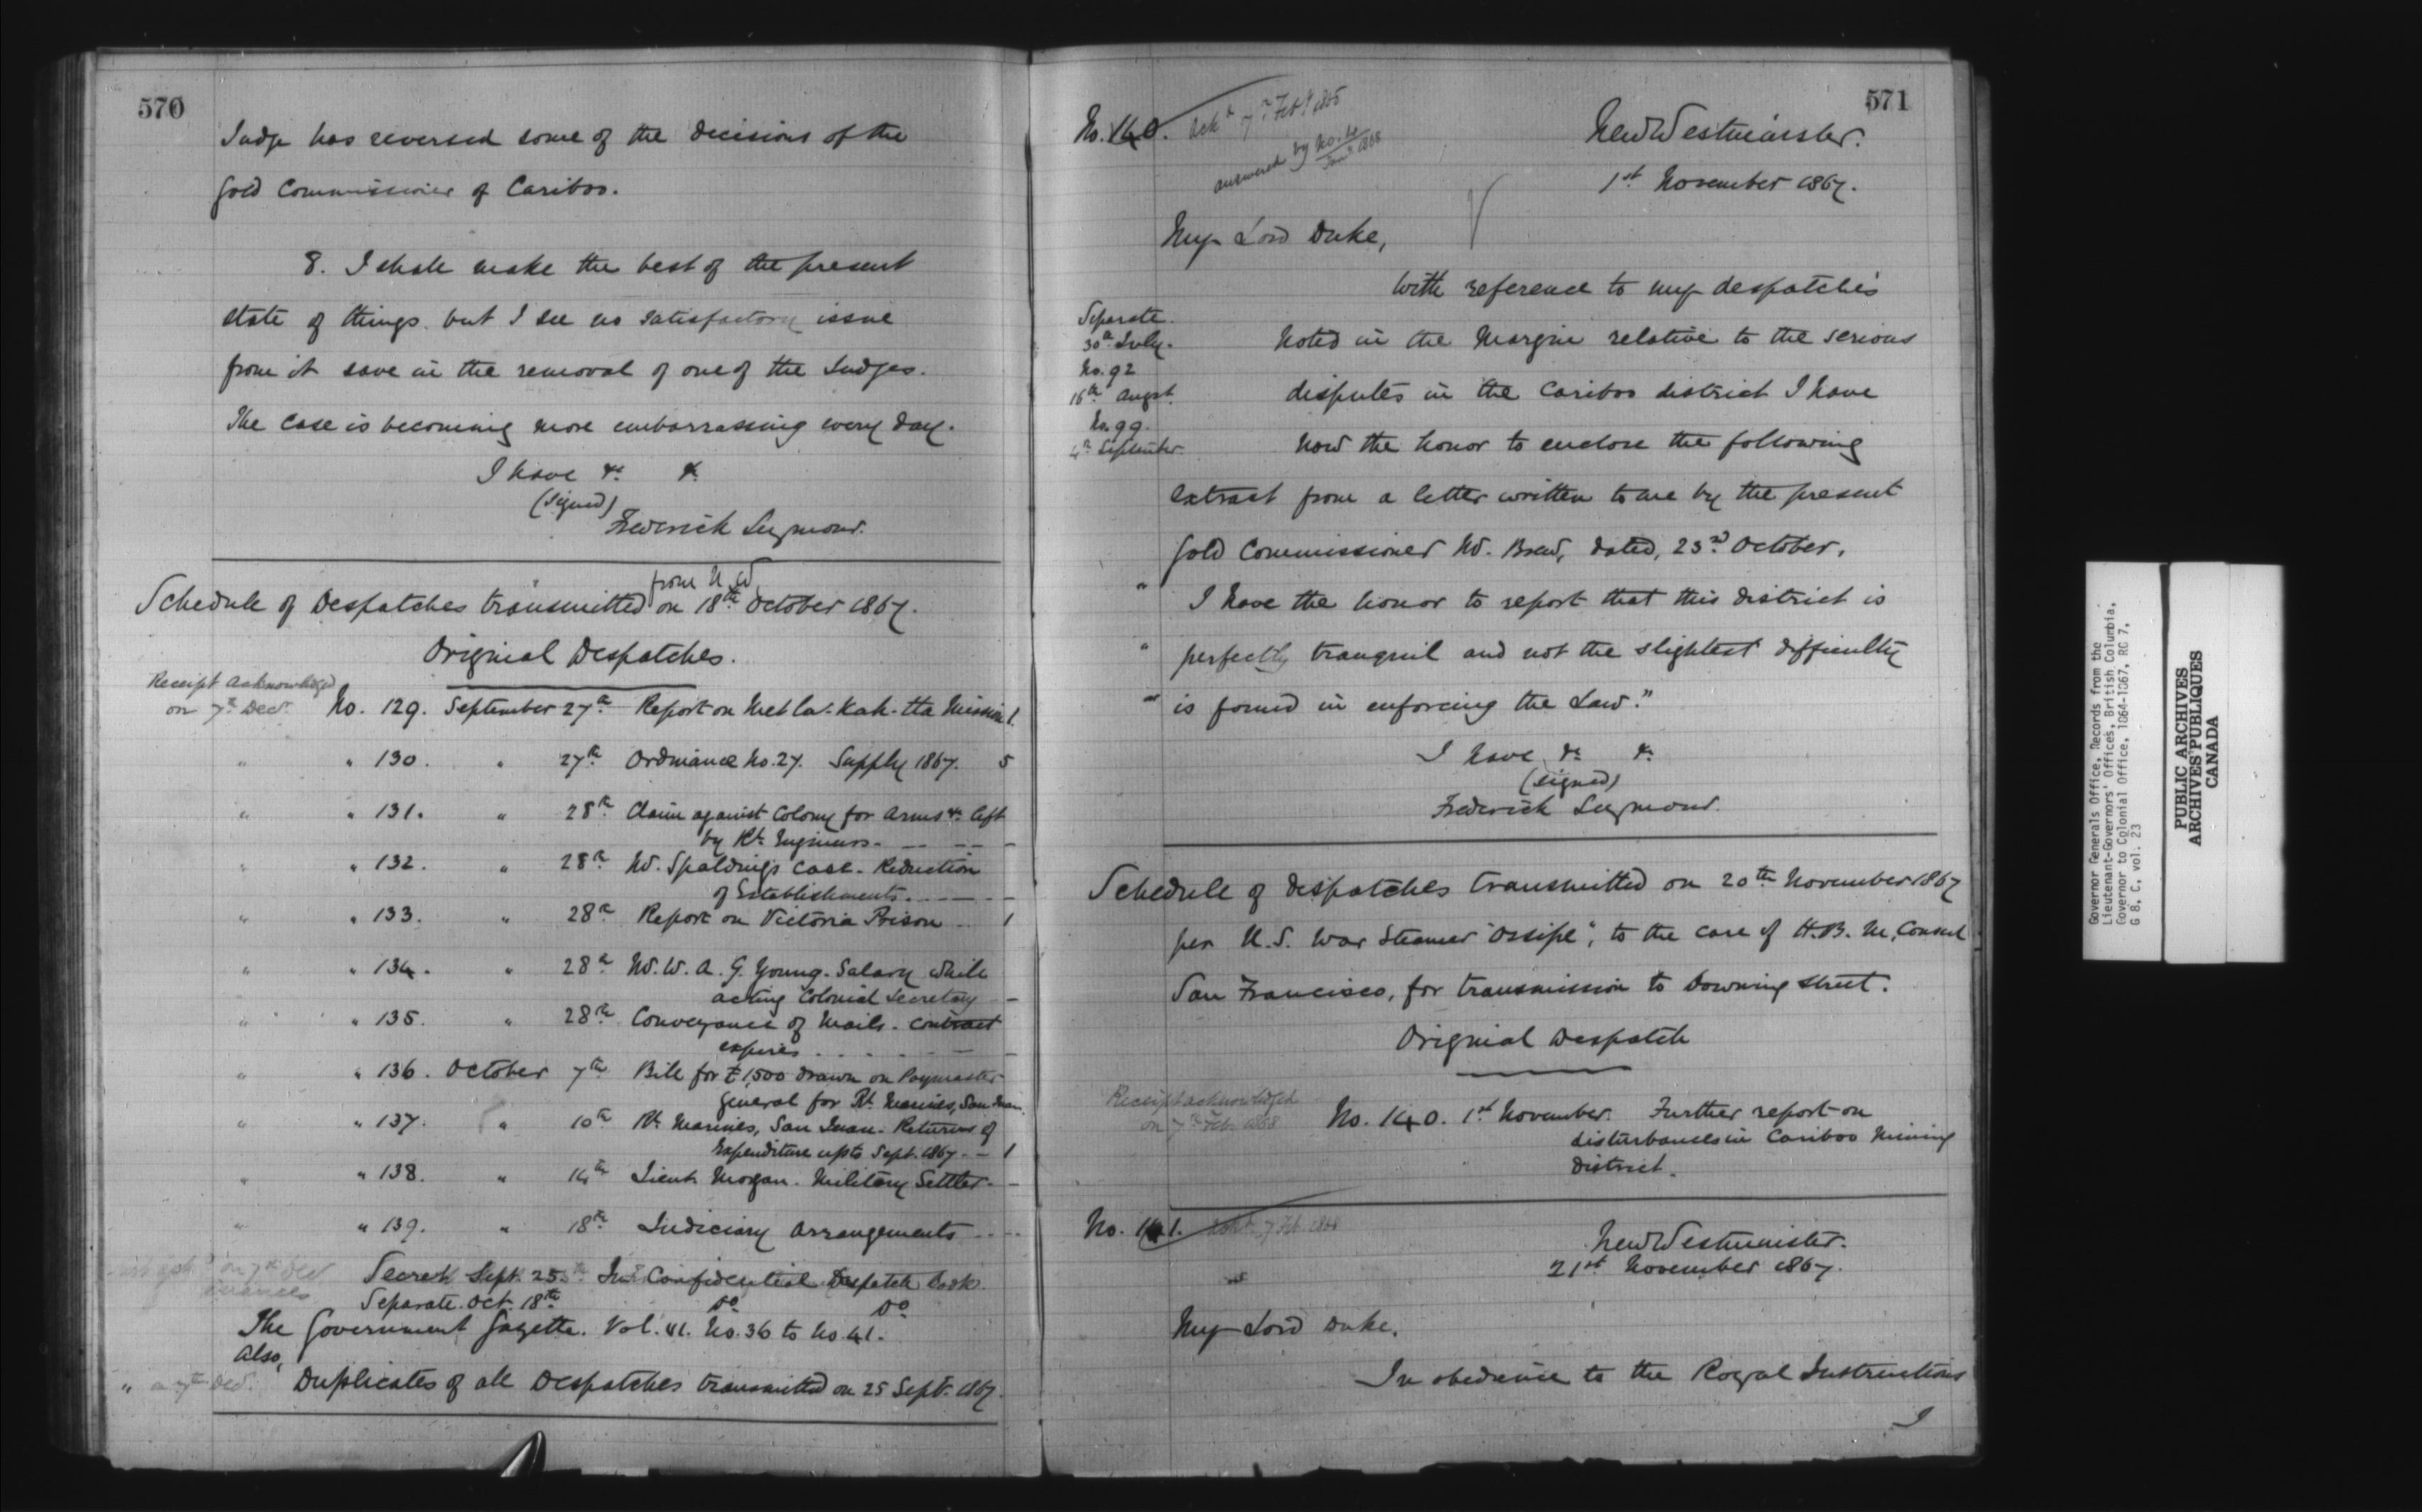 570
Judge has reversed some of the decisions of the
Gold Commissioner of Cariboo.
8. I shall make the best of the present
state of things but I see no satisfactory issue
from it save in the removal of one of the Judges.
The case is becoming more embarrassing every day.
I have &c &c
(signed)
Frederick Seymour.
Schedule of Despatches transmitted from N.W. on 18th October 1867.
Original Despatches.
Receipt Acknowledged
on 7th Decr. No. 129. September 27th Report on Metla-Kah-tta Mission 1.
" " 130. " 27th Ordinance No. 27. Supply 1867. 5
" " 131. " 28th Claim against Colony for Arms &c left
by Rl. Engineers. - -- -- -
" " 132. " 28th Mr. Spalding's Case - Reduction
of Establishments. - - - -
" " 133. " 28th Report on Victoria Prison - 1
" " 134. " 28th Mr. W. A. G. Young. Salary while
acting Colonial Secretary -
" " 135. " 28th Conveyance of Mails. Contract
expires . . . . -
" " 136. October 7th Bill for £1,500 drawn on Paymaster
General for Rl. Marines, San Juan.
" " 137. " 10th Rl. Marines, San Juan. Returns of
Expenditure up to Sept. 1867. - 1
" " 138. " 14th Lieut. Morgan. Military Settler. -
" " 139. " 18th Judiciary Arrangements - . . -
on 7th Dec Secret Sept. 25th In Confidential Despatch Book
Separate. Oct. 18th Do Do
The Government Gazette. Vol. No. 36 to No. 41.
Also,
" 7th Dec. Duplicates of all Despatches transmitted on 25 Sept. 1867.
571
No. 140. Ackd 7th Feby 1868
answered by No.
1868
New Westminster.
1st November 1867.
My Lord Duke,
With reference to my despatches
Separate.
30th July.
No. 92
16th Augst.
No. 99.
4th September.
noted in the Margin relative to the serious
disputes in the Cariboo district I have
now the honor to enclose the following
extract from a letter written to me by the present
Gold Commissioner Mr. Brew, dated, 23rd October.
" I have the honor to report that this district is
" perfectly tranquil and not the slightest difficulty
" is found in enforcing the Law."
I have &c &c
(signed)
Frederick Seymour.
Schedule of despatches transmitted on 20th November 1867
per U.S. War Steamer "Ossipe", to the care of H.B.M. Consul
San Francisco, for transmission to Downing Street.
Original Despatch
Receipt acknowledged
on 7th Feb 1868 No. 140. 1st November. Further report on
disturbances in Cariboo Mining
District.
No. 141. Ackd. 7 Feb. 1868
New Westminster.
21st November 1867.
My Lord Duke,
In obedience to the Royal Instructions
I
Governor Generals Office, Records from the
Lieutenant-Governors' Offices, British Columbia,
Governor to Colonial Office, 1864-1867, RG 7,
G 8, C, vol. 23
PUBLIC ARCHIVES
ARCHIVES PUBLIQUES
CANADA